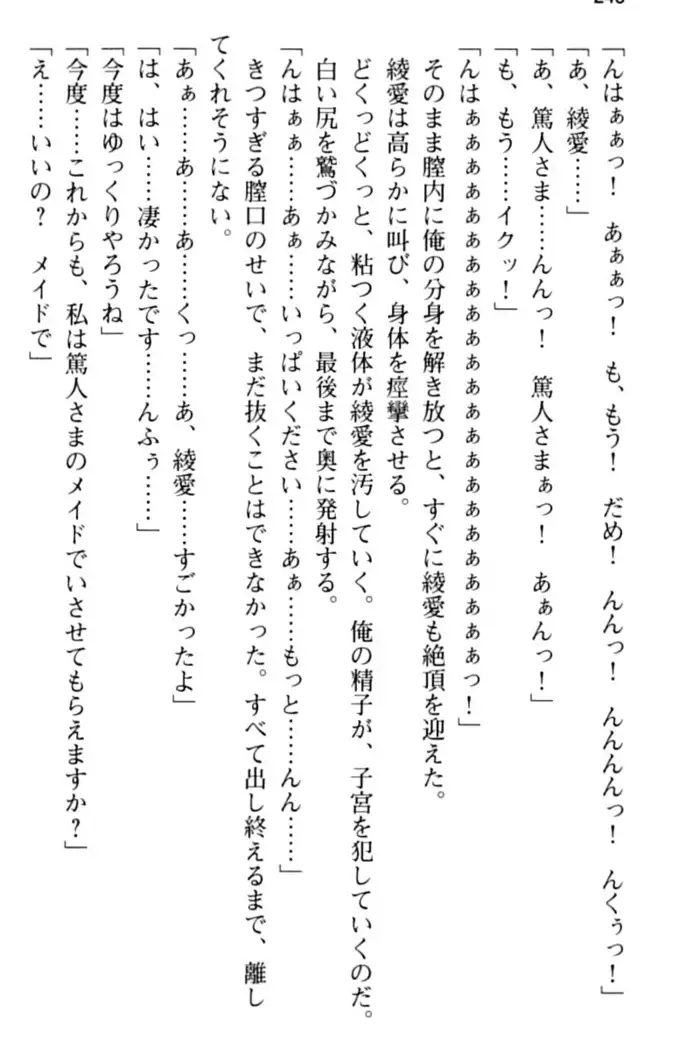 「んはぁぁっ！　あぁぁっ！　も、もう！　だめ！　んんっ！　んんんんっ！　んくぅっ！」
「あ、綾愛……」
「あ、篤人さま……んんっ！　篤人さまぁっ！　あぁんっ！」
「も、もう……イクッ！」
「んはぁぁぁぁぁぁぁぁぁぁぁぁぁぁぁぁぁぁぁぁぁぁぁっ！」
そのまま膣内に俺の分身を解き放つと、すぐに綾愛も絶頂を迎えた。
綾愛は高らかに叫び、身体を痙攣させる。
どくっどくっと、粘つく液体が綾愛を汚していく。俺の精子が、子宮を犯していくのだ。
白い尻を鷲づかみながら、最後まで奥に発射する。
「んはぁぁ……あぁ……いっぱいください……あぁ……もっと……んん……」
きつすぎる膣口のせいで、まだ抜くことはできなかった。すべて出し終えるまで、離し
てくれそうにない。
「あぁ……あ……あ……くっ……あ、綾愛……すごかったよ」
「は、はい……凄かったです……んふぅ……」
「今度はゆっくりやろうね」
「今度……これからも、私は篤人さまのメイドでいさせてもらえますか？」
「え……いいの？　メイドで」